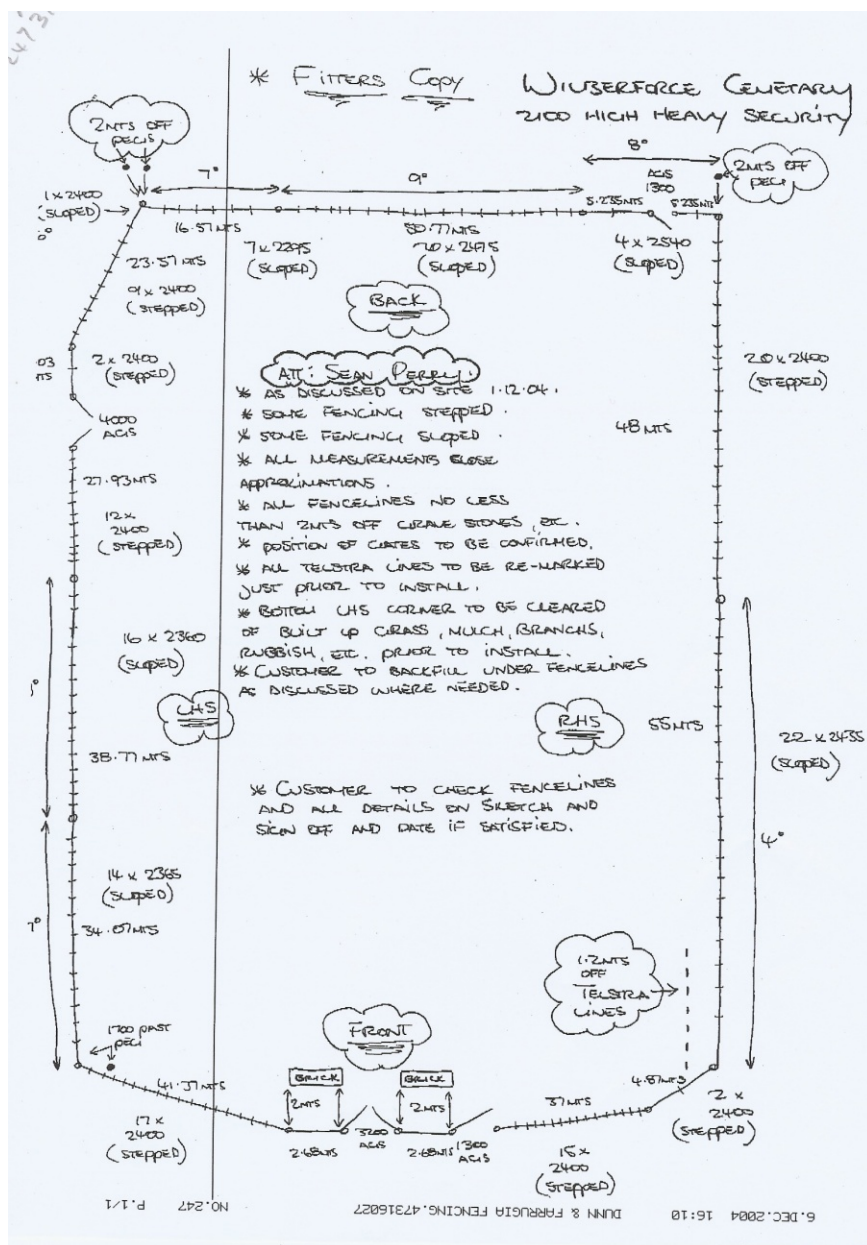 2473
* FITTERS COPY
WILBERFORCE CEMETARY
2100 HIGH HEAVY SECURITY
2MTS OFF
PEGS
7°
9°
8°
2MTS OFF
PEG
AGIS
1300
1 x 2400
(SLOPED)
8°
16.57MTS
50.77MTS
5.235MTS
5.235MTS
7 x 2295
(SLOPED)
20 x 2475
(SLOPED)
4 x 2540
(SLOPED)
23.57MTS
9 x 2400
(STEPPED)
BACK
03
MTS
2 x 2400
(STEPPED)
20 x 2400
(STEPPED)
ATT: SEAN PERRY.
* AS DISCUSSED ON SITE 1.12.04.
* SOME FENCING STEPPED.
* SOME FENCING SLOPED.
* ALL MEASUREMENTS CLOSE
APPROXIMATIONS.
* ALL FENCELINES NO LESS
THAN 2MTS OFF GRAVE STONES, ETC.
* POSITION OF GATES TO BE CONFIRMED.
* ALL TELSTRA LINES TO BE RE-MARKED
JUST PRIOR TO INSTALL.
* BOTTOM LHS CORNER TO BE CLEARED
OF BUILT UP GRASS, MULCH, BRANCHS,
RUBBISH, ETC. PRIOR TO INSTALL.
* CUSTOMER TO BACKFILL UNDER FENCELINES
AS DISCUSSED WHERE NEEDED.
4000
AGIS
48MTS
27.93MTS
12 x
2400
(STEPPED)
16 x 2360
(SLOPED)
5°
LHS
RHS
55MTS
22 x 2435
(SLOPED)
38.77MTS
* CUSTOMER TO CHECK FENCELINES
AND ALL DETAILS ON SKETCH AND
SIGN OFF AND DATE IF SATISFIED.
4°
14 x 2365
(SLOPED)
7°
34.07MTS
1.2MTS
OFF
TELSTRA
LINES
1700 PAST
PEG
FRONT
BRICK
BRICK
41.37MTS
2MTS
2MTS
37MTS
4.87MTS
17 x
2400
(STEPPED)
2.68MTS
3200
AGIS
2.68MTS
1300
AGIS
15 x
2400
(STEPPED)
2 x
2400
(STEPPED)
6.DEC.2004 16:10 DUNN & FARRUGIA FENCING.47316027 NO.247 P.1/1